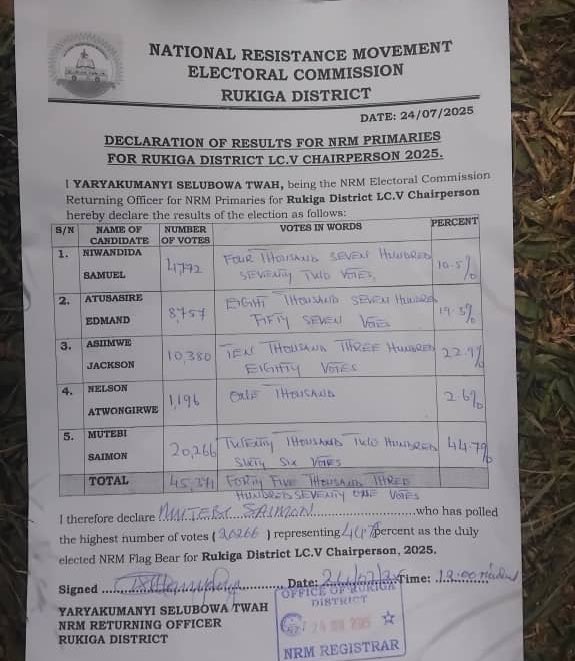 NATIONAL RESISTANCE MOVEMENT
ELECTORAL COMMISSION
RUKIGA DISTRICT
DATE: 24/07/2025
DECLARATION OF RESULTS FOR NRM PRIMARIES
FOR RUKIGA DISTRICT LC.V CHAIRPERSON 2025.
I YARYAKUMANYI SELUBOWA TWAH, being the NRM Electoral Commission
Returning Officer for NRM Primaries for Rukiga District LC.V Chairperson
hereby declare the results of the election as follows:
S/N NAME OF CANDIDATE NUMBER OF VOTES VOTES IN WORDS PERCENT
1. NIWANDIDA SAMUEL 4,772 FOUR THOUSAND SEVEN HUNDRED SEVENTY TWO VOTES 10.5%
2. ATUSASIRE EDMAND 8,757 EIGHT THOUSAND SEVEN HUNDRED FIFTY SEVEN VOTES 19.3%
3. ASIIMWE JACKSON 10,380 TEN THOUSAND THREE HUNDRED EIGHTY VOTES 22.9%
4. NELSON ATWONGIRWE 1,196 ONE THOUSAND 2.6%
5. MUTEBI SAIMON 20,266 TWENTY THOUSAND TWO HUNDRED SIXTY SIX VOTES 44.7%
TOTAL 45,371 FORTY FIVE THOUSAND THREE HUNDRED SEVENTY ONE VOTES
I therefore declare MUTEBI SAIMON who has polled
the highest number of votes (20266) representing 44.7 percent as the duly
elected NRM Flag Bear for Rukiga District LC.V Chairperson, 2025.
Signed Date: Time:
YARYAKUMANYI SELUBOWA TWAH
NRM RETURNING OFFICER
RUKIGA DISTRICT
OFFICE OF RUKIGA
DISTRICT
NRM REGISTRAR